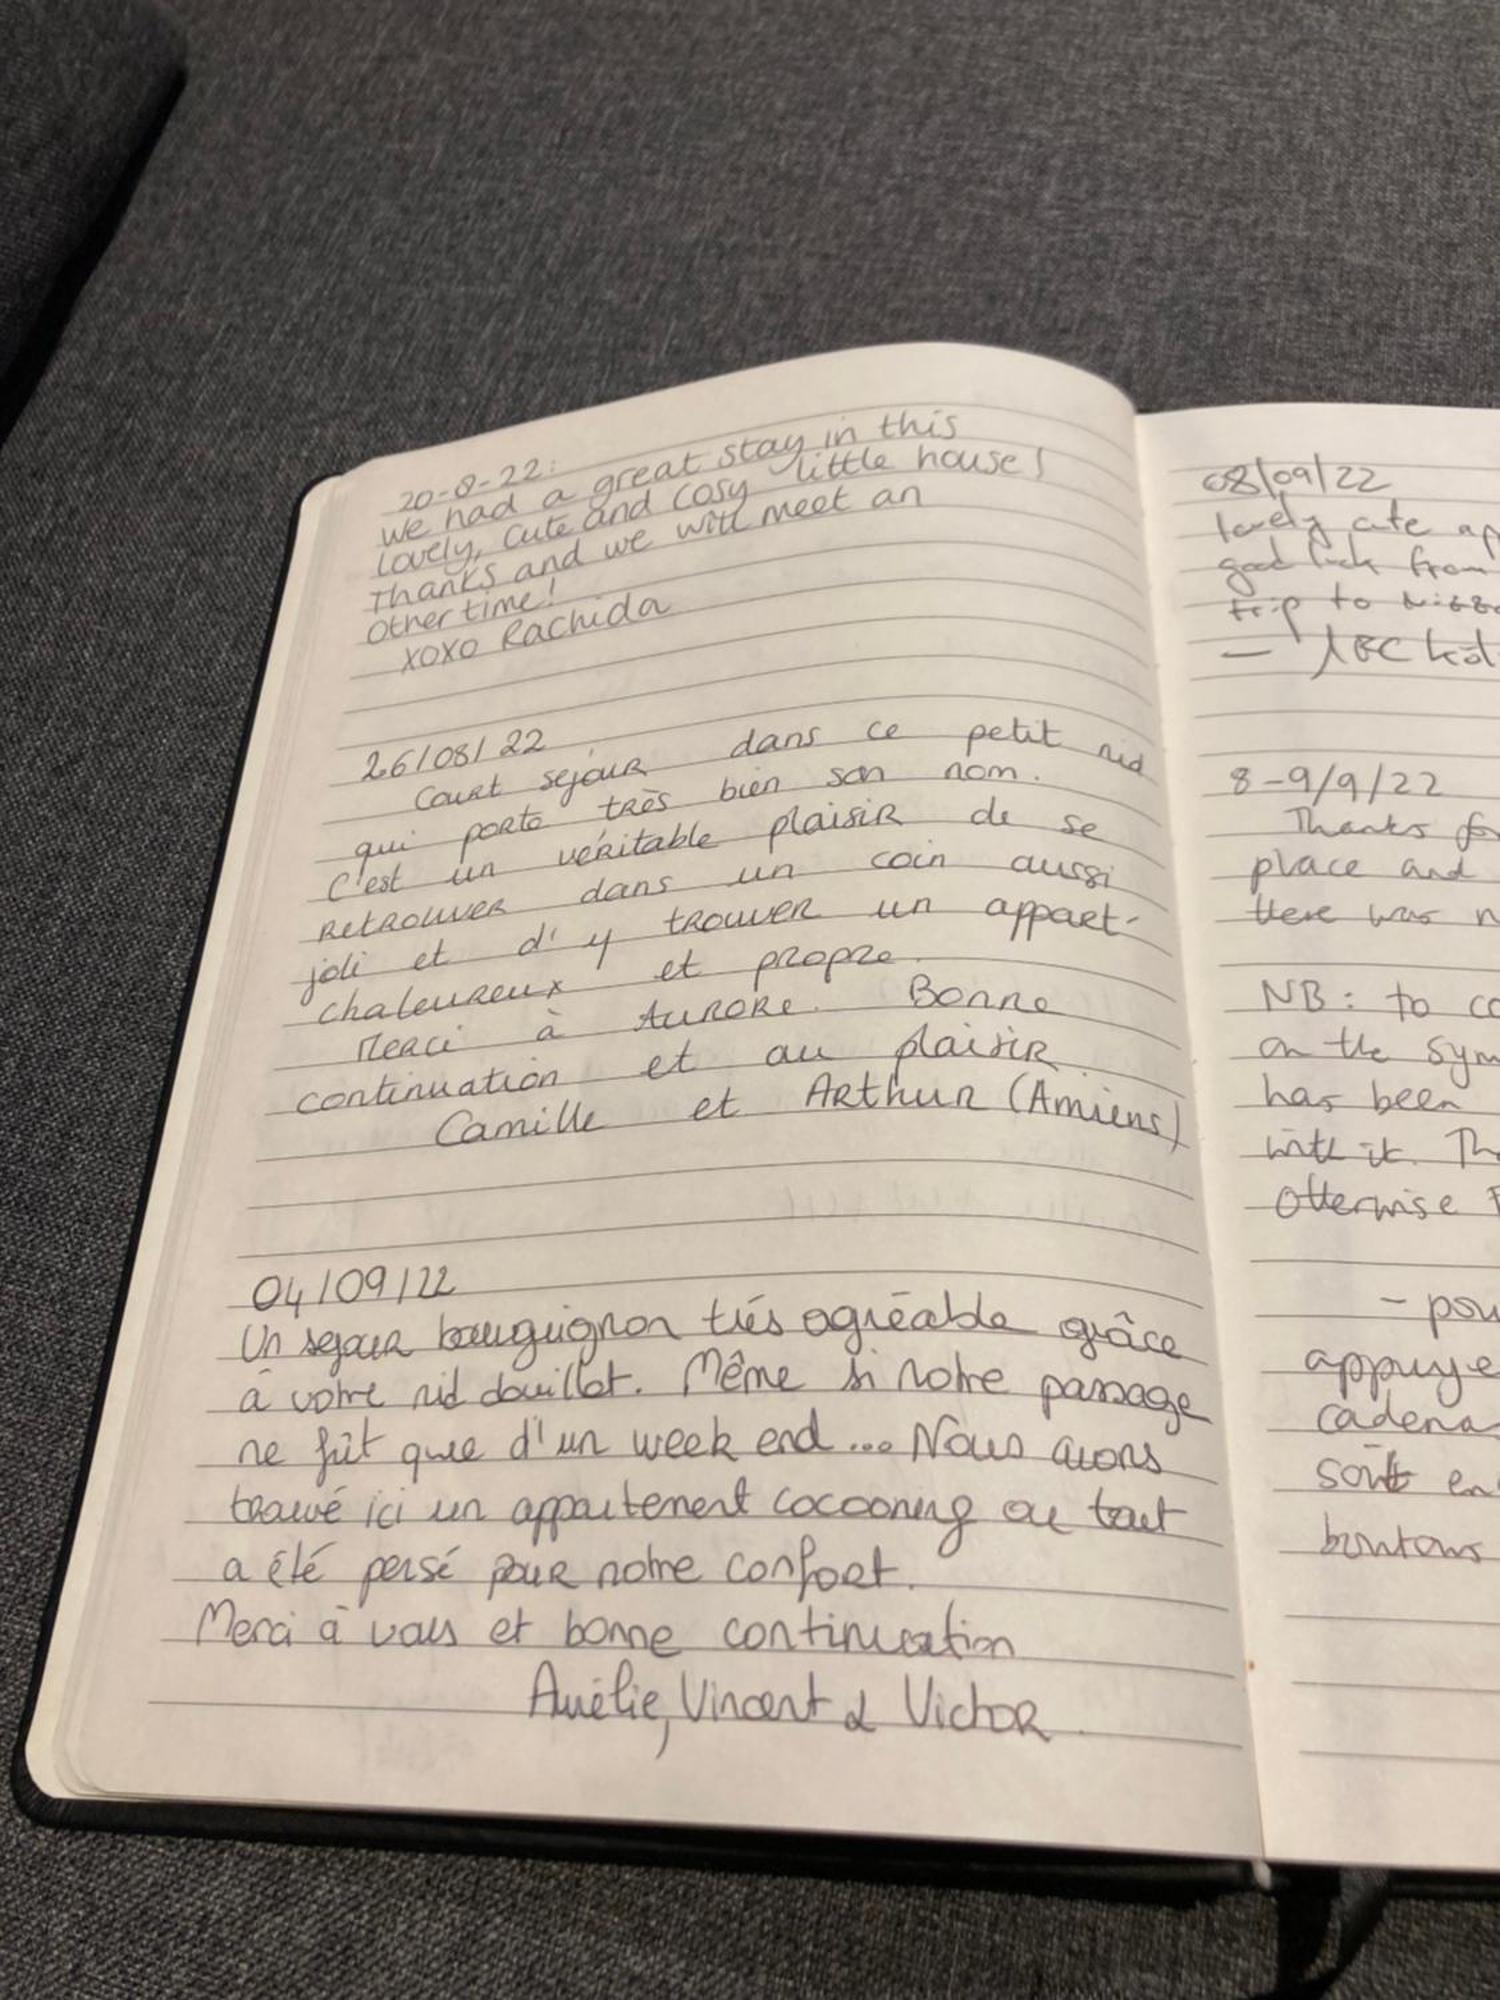 20-8-22:
we had a great stay in this
lovely, cute and cosy little house!
Thanks and we will meet an
other time!
xoxo Rachida
26/08/22
Court sejour dans ce petit nid
qui porte très bien son nom.
C'est un véritable plaisir de se
retrouver dans un coin aussi
joli et d'y trouver un appart-
chaleureux et propre.
Merci à Aurore. Bonne
continuation et au plaisir
Camille et Arthur (Amiens)
04/09/22
Un sejour bourguignon très agréable grâce
à votre nid douillet. Même si notre passage
ne fût que d'un week end... Nous avons
trouvé ici un appartement cocooning ou tout
a été pensé pour notre confort.
Merci à vous et bonne continuation
Aurélie, Vincent & Victor
08/09/22
lovely cute ap
good luck from
trip to
— ABC
8-9/9/22
Thanks for
place and
there was n
NB: to co
on the sym
has been
with it. Th
otherwise
- pou
appuye
cadena
sont en
boutons